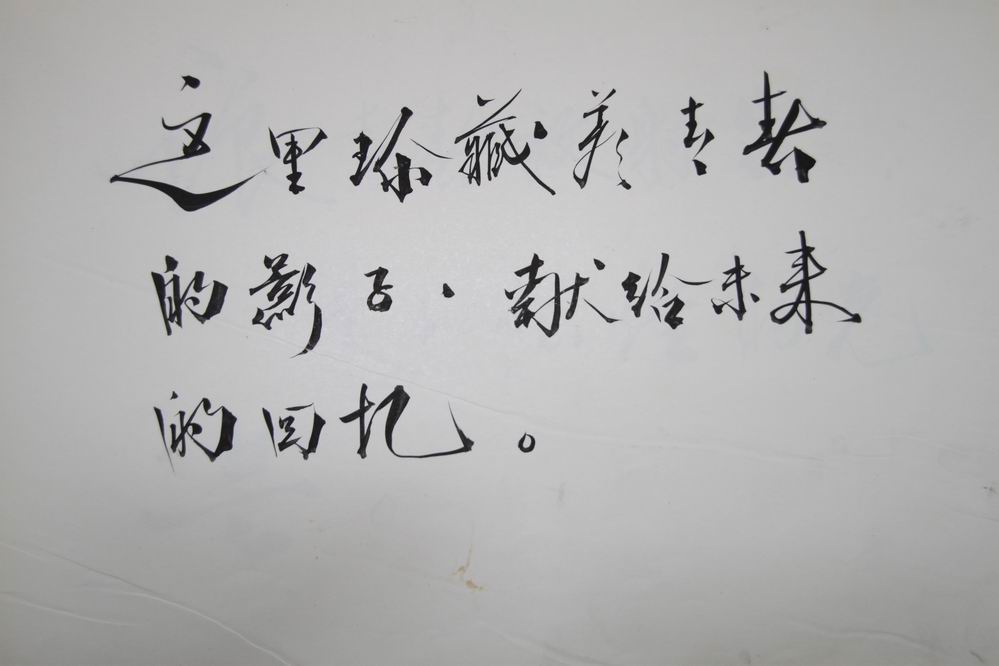 这里珍藏着青春
的影子,献给未来
的回忆。